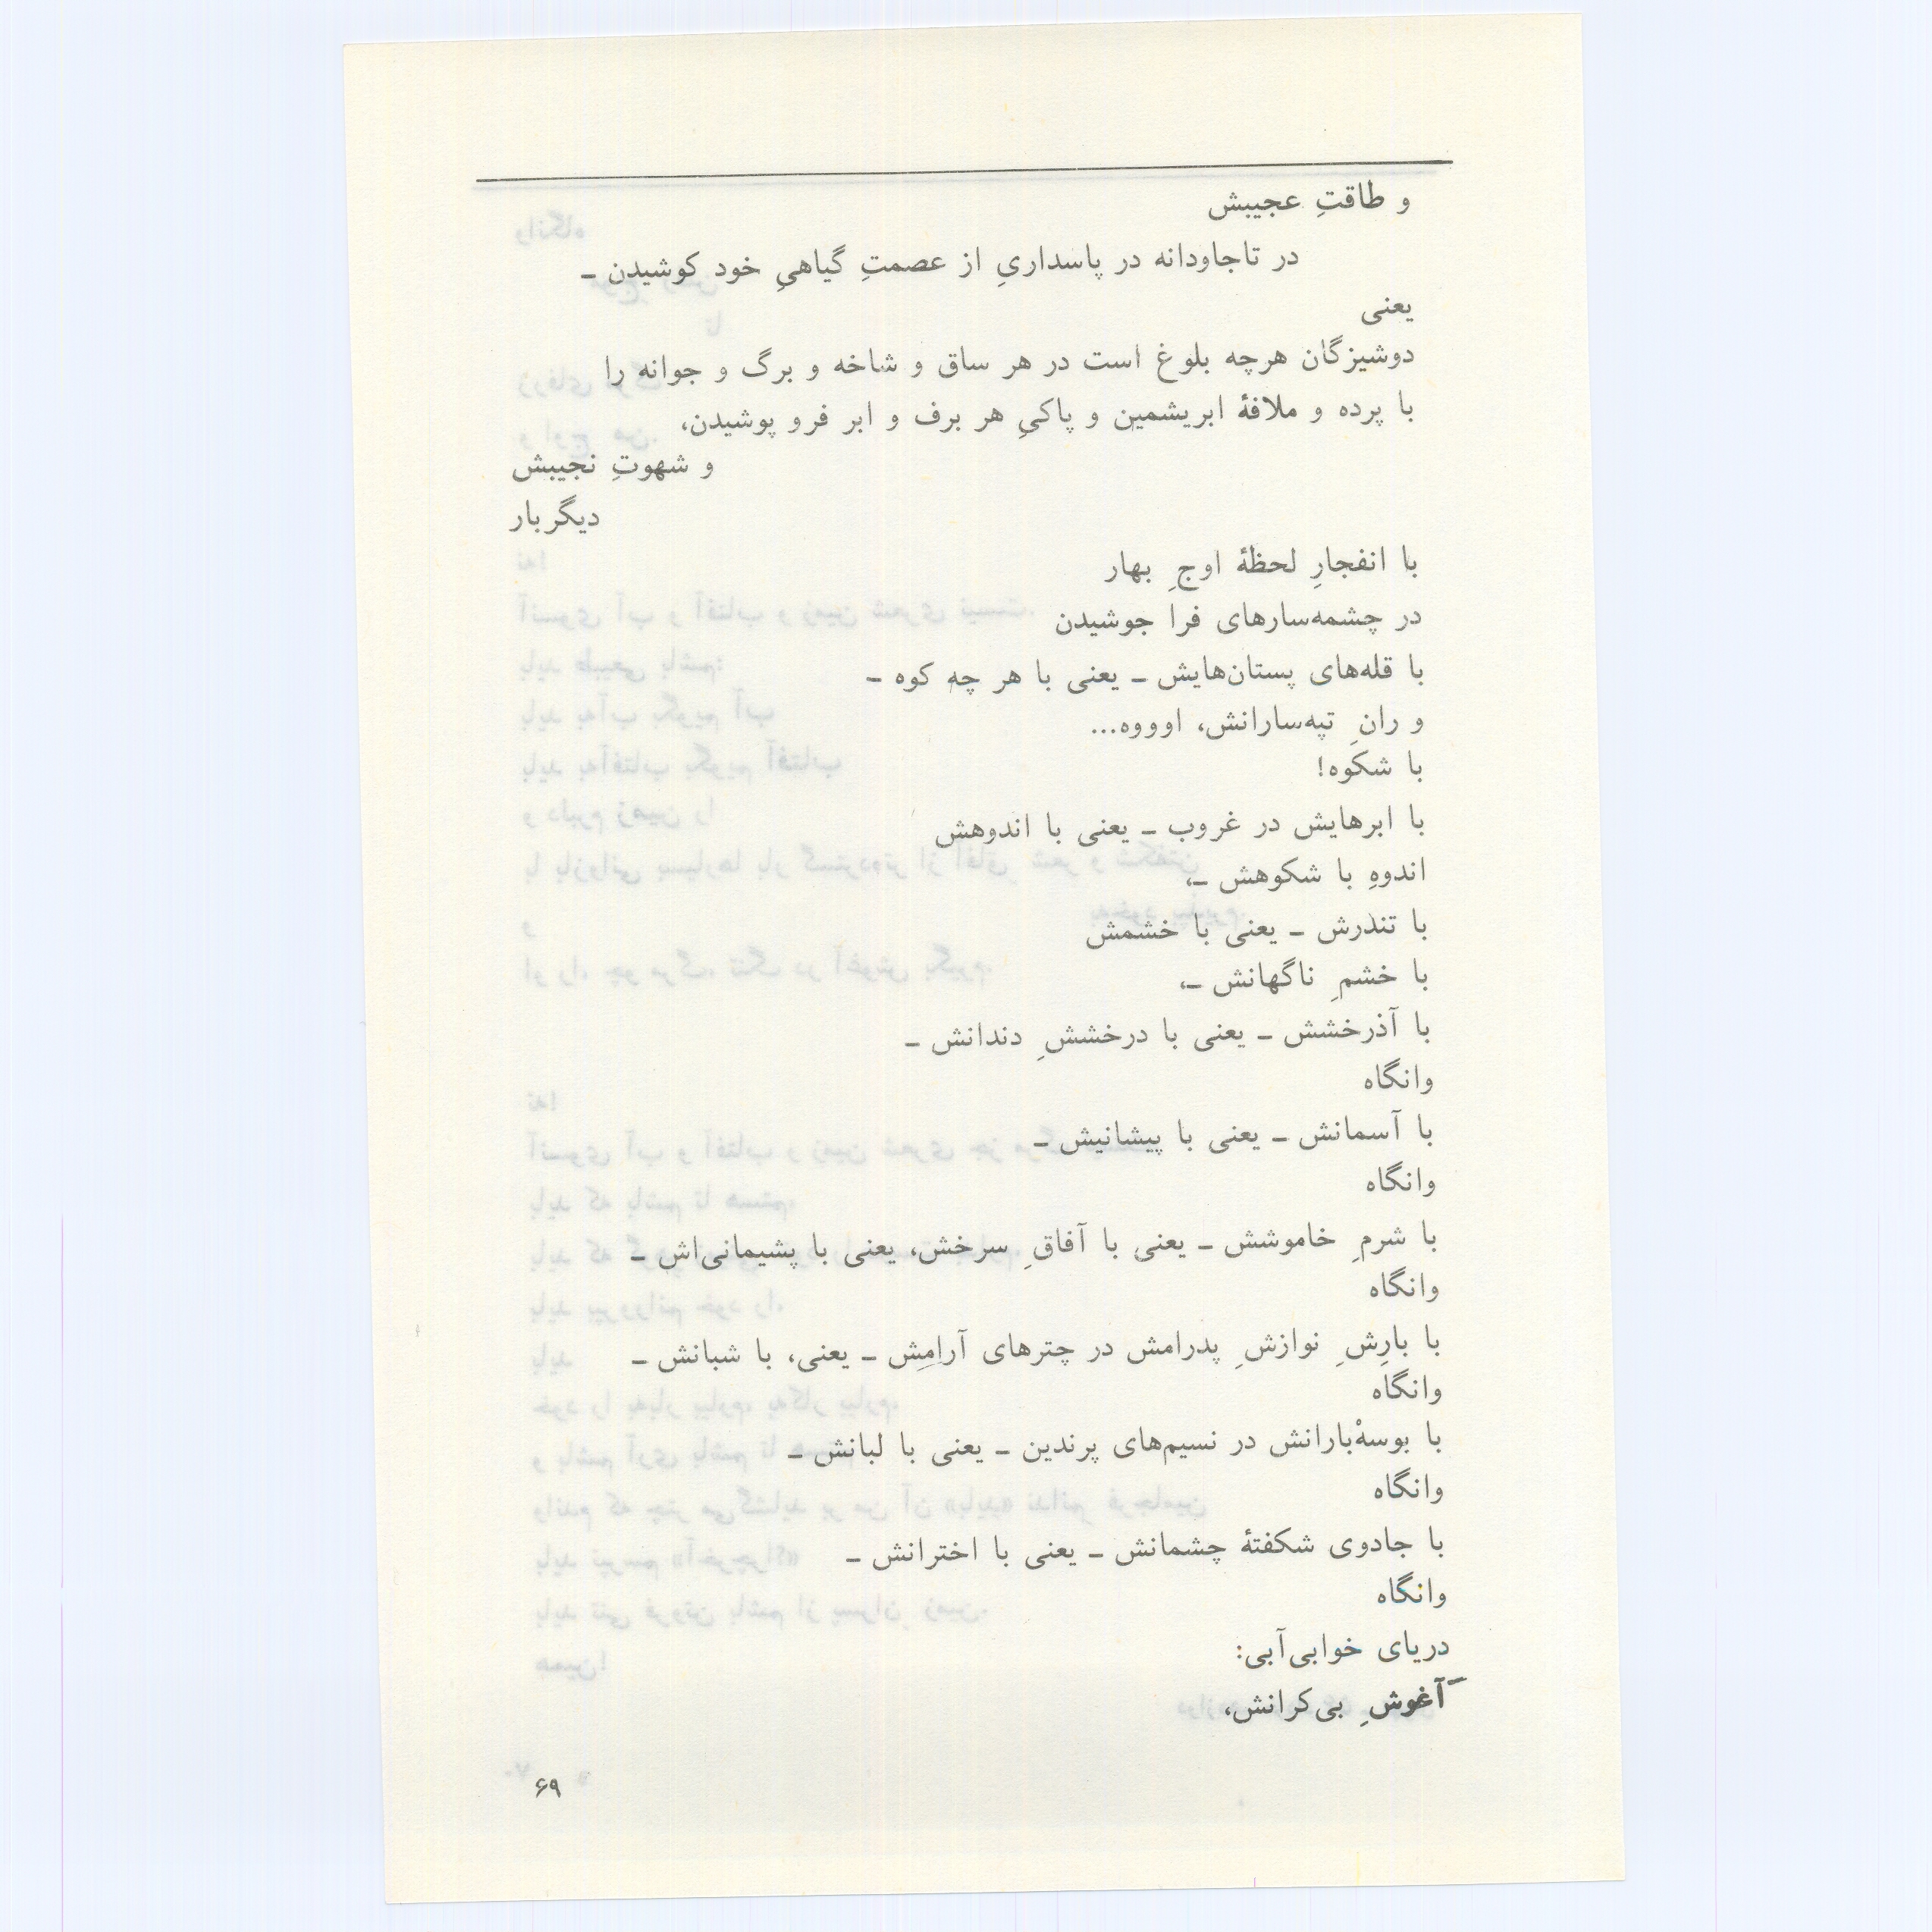 و طاقتِ عجیبش
در تاجاودانه در پاسداریِ از عصمتِ گیاهیِ خود کوشیدن ـ
یعنی
دوشیزگان هرچه بلوغ است در هر ساق و شاخه و برگ و جوانه را
با پرده و ملافهٔ ابریشمین و پاکیِ هر برف و ابر فرو پوشیدن،
و شهوتِ نجیبش
دیگربار
با انفجارِ لحظهٔ اوجِ بهار
در چشمه‌سارهای فرا جوشیدن
با قله‌های پستان‌هایش ـ یعنی با هر چه کوه ـ
و رانِ تپه‌سارانش، اوووه...
با شکوه!
با ابرهایش در غروب ـ یعنی با اندوهش
اندوهِ با شکوهش ـ،
با تندرش ـ یعنی با خشمش
با خشمِ ناگهانش ـ،
با آذرخشش ـ یعنی با درخششِ دندانش ـ
وانگاه
با آسمانش ـ یعنی با پیشانیش ـ
وانگاه
با شرمِ خاموشش ـ یعنی با آفاقِ سرخش، یعنی با پشیمانی‌اش ـ
وانگاه
با بارِشِ نوازشِ پدرامش در چترهای آرامِش ـ یعنی، با شبانش ـ
وانگاه
با بوسهْ‌بارانش در نسیم‌های پرندین ـ یعنی با لبانش ـ
وانگاه
با جادوی شکفتهٔ چشمانش ـ یعنی با اخترانش ـ
وانگاه
دریای خوابی‌آبی:
ـ آغوشِ بی‌کرانش،
۶۹